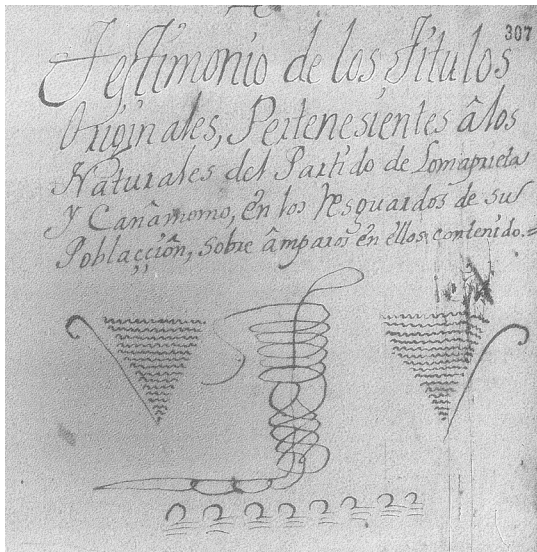 307
Testimonio de los Titulos
Originales, Pertenesientes â los
Naturales del Partido de Lomaprieta
y Cañâmomo, en los resguardos de su
Poblaççiôn, sobre âmparos en ellos contenido.=